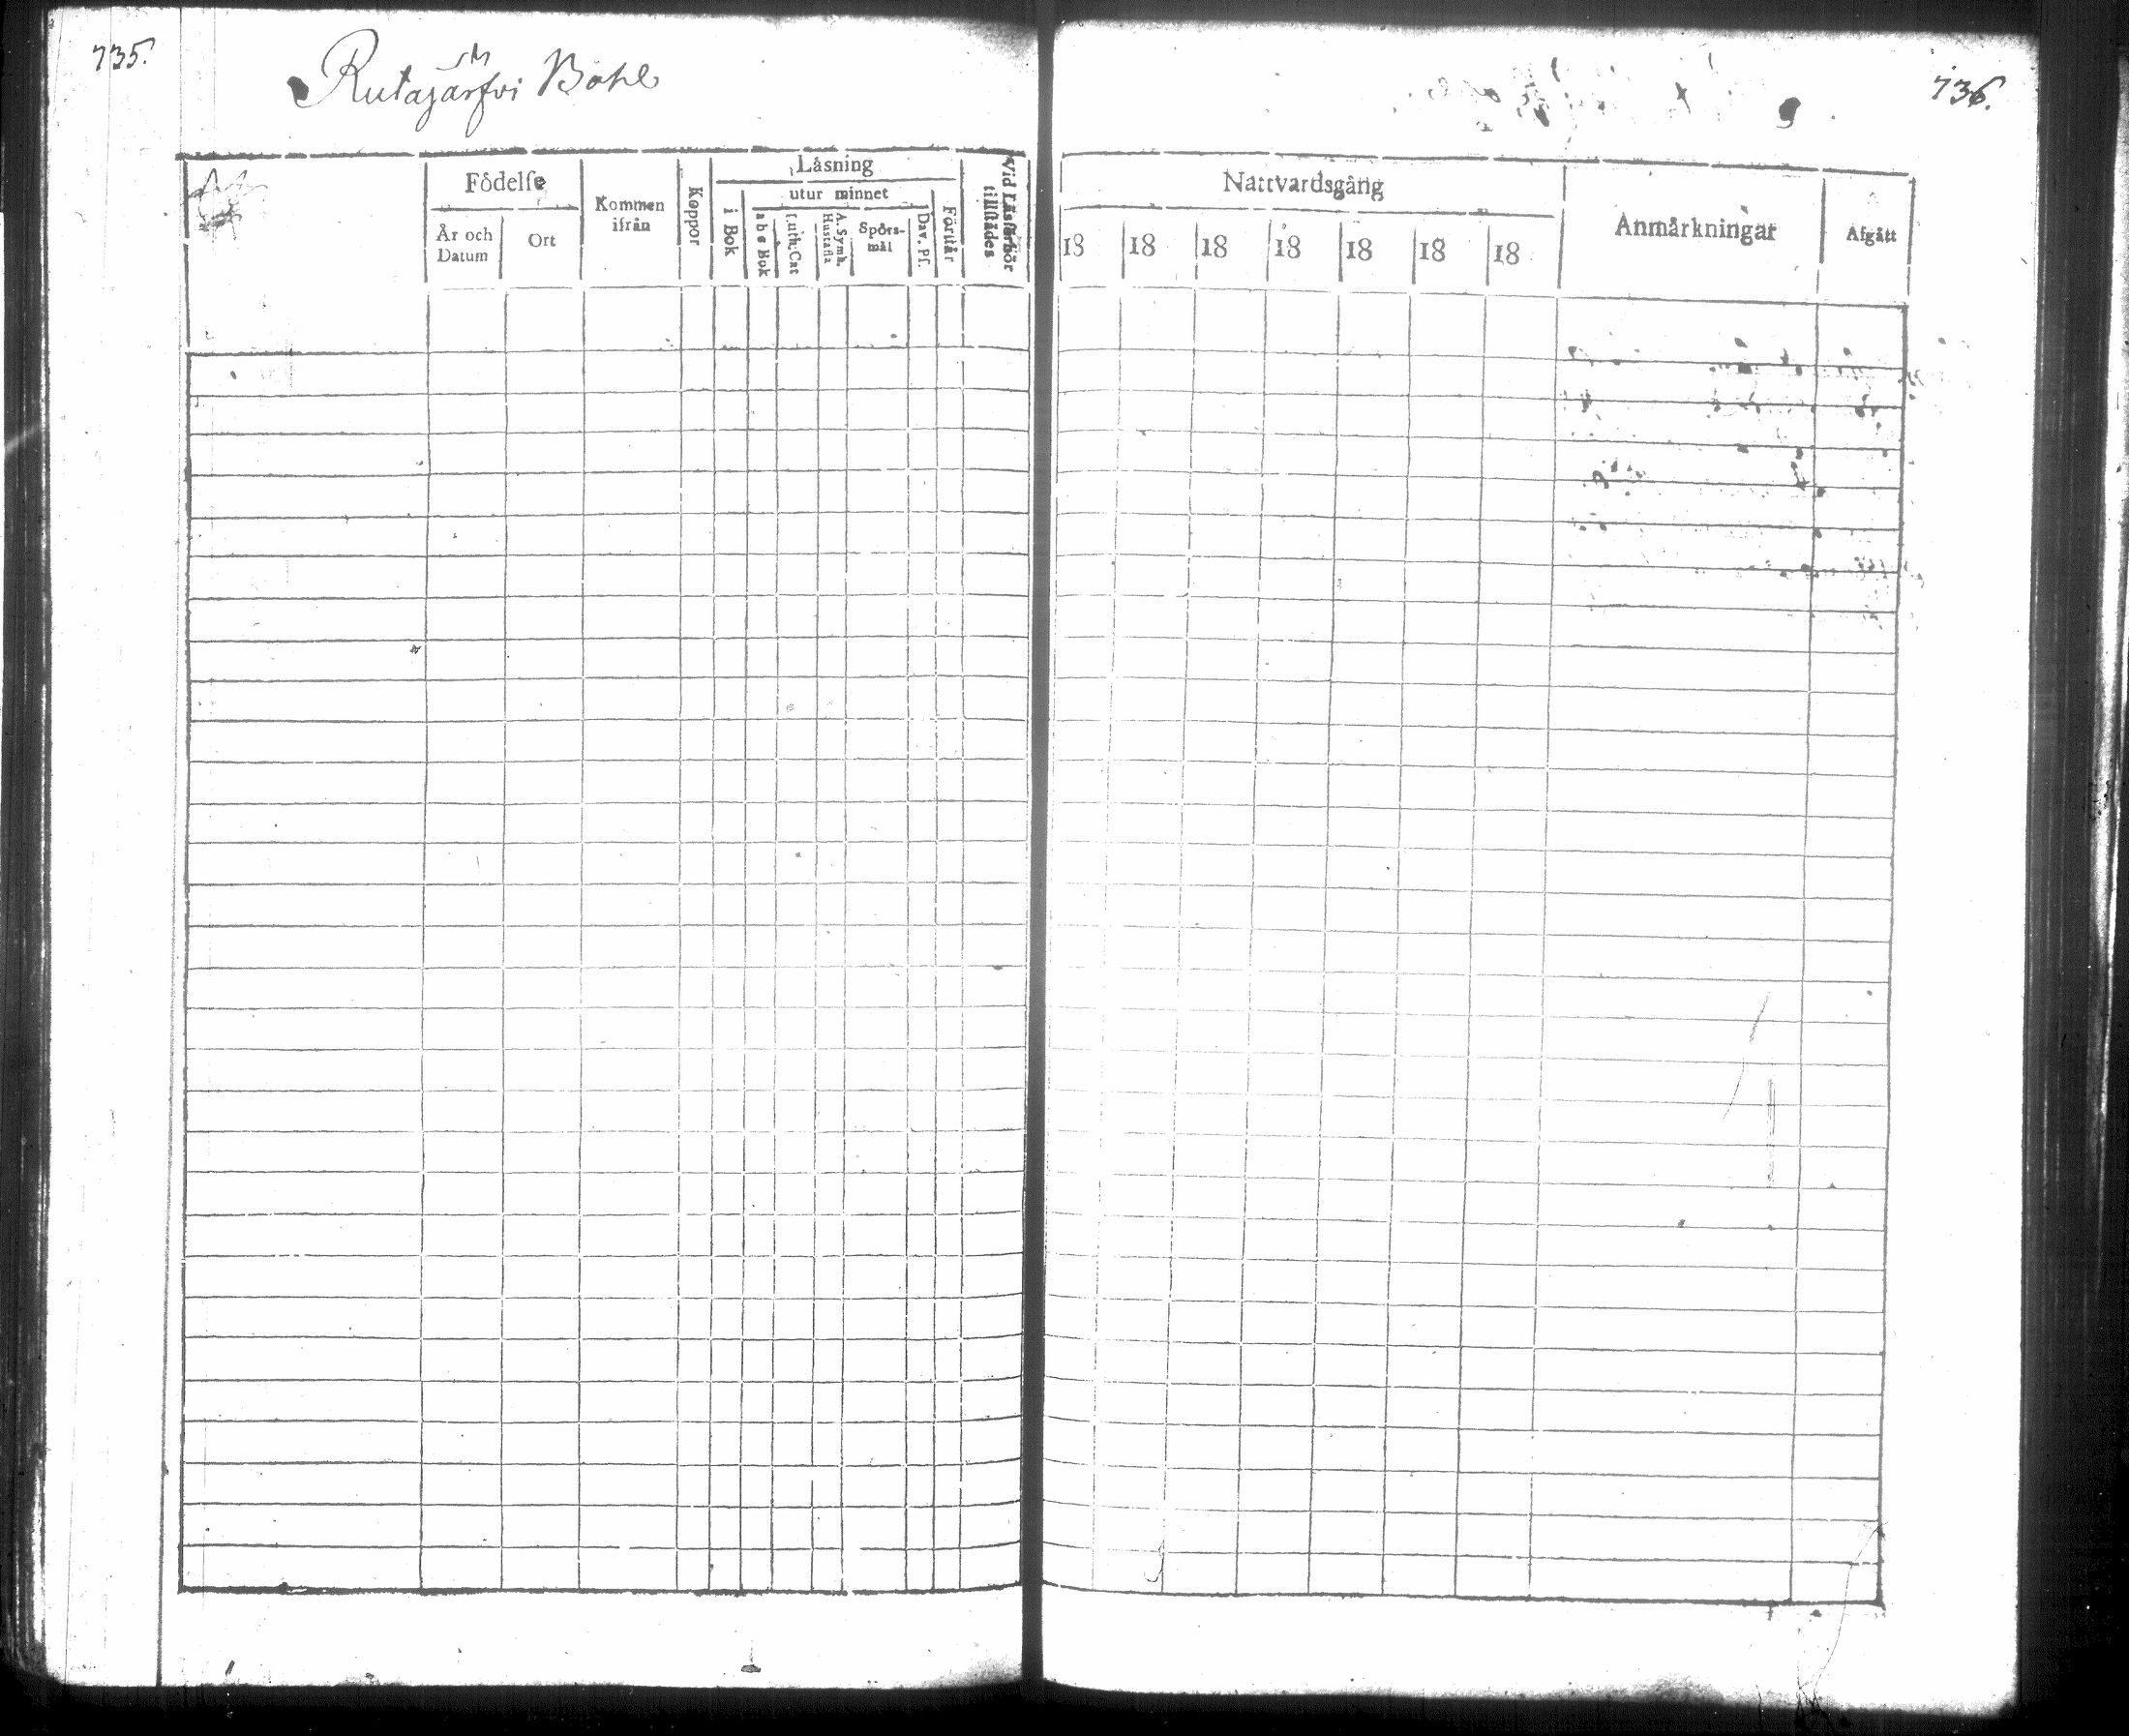 735.
Rutajärfvi Bohl
736.
Läsning
Födelse
utur minnet
Kommen
ifrån
Koppor
i Bok
a b c Bok
Luth. Cat
A. Symb.
Hustafla
Spörs-
mål
Dav. Ps.
Förstår
Vid Läsförhör
tillstädes
År och
Datum
Ort
Nattvardsgång
Anmärkningar
Afgått
18 18 18 18 18 18 18